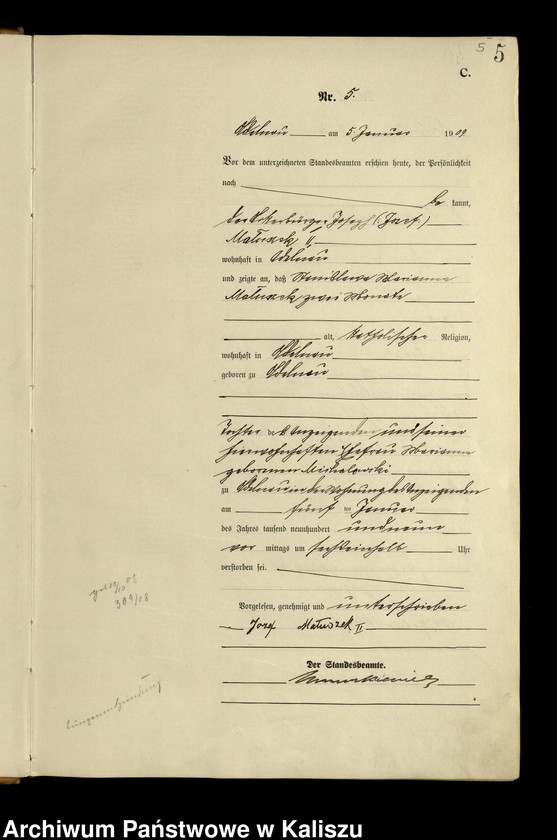 5 5
C.
Nr. 5.
Adelnau am 5. Januar 1909.
Vor dem unterzeichneten Standesbeamten erschien heute, der Persönlichkeit
nach be kannt,
der Ackerbürger Joseph (Jozef)
Matuszek II,
wohnhaft in Adelnau
und zeigte an, daß Stanislawa Marianna
Matuszek zwei Monate
alt, katholischer Religion,
wohnhaft in Adelnau
geboren zu Adelnau
Tochter des Anzeigenden und seiner
hierwohnhaften Ehefrau Marianna
geborenen Michalowski
zu Adelnau in der Wohnung des Anzeigenden
am fünften Januar
des Jahres tausend neunhundert und neun
vor mittags um sechseinhalb Uhr
verstorben sei.
Vorgelesen, genehmigt und unterschrieben
Jozef Matuszek II
Der Standesbeamte.
309/08
Lungenentzündung
Archiwum Państwowe w Kaliszu